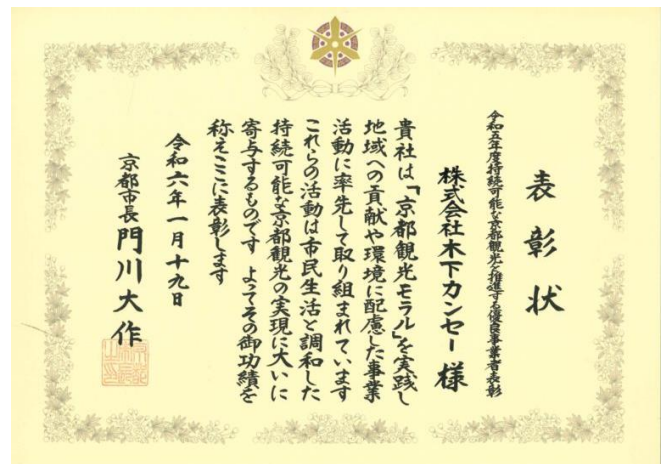 表彰状
令和五年度持続可能な京都観光を推進する優良事業者表彰
株式会社木下カンセー様
貴社は「京都観光モラル」を実践し
地域への貢献や環境に配慮した事業
活動に率先して取り組まれています
これらの活動は市民生活と調和した
持続可能な京都観光の実現に大いに
寄与するものです よってその御功績を
称えここに表彰します
令和六年一月十九日
京都市長 門川大作